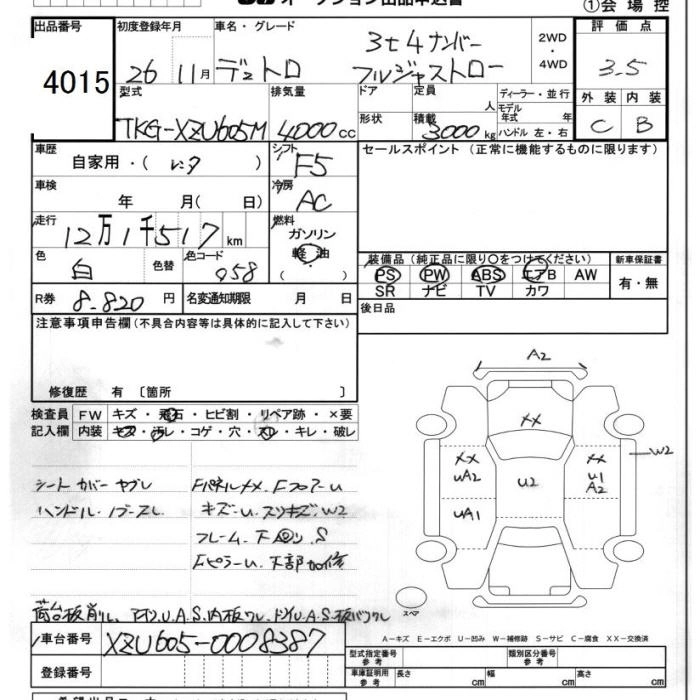 ①会場控
出品番号
4015
初度登録年月
26 11月
車名・グレード
デュトロ
3t4ナンバー
フルジャストロー
2WD
4WD
評価点
3.5
外装 内装
C B
型式
TKG-XZU605M
排気量
4000cc
ドア
定員
人
ディーラー・並行
モデル
年式 年
形状
積載
3000kg
ハンドル 左・右
車歴
自家用・(レンタ)
シフト
F5
セールスポイント (正常に機能するものに限ります)
車検
年 月(日)
冷房
AC
走行
12万1千517km
燃料
ガソリン
軽油
( )
色
白
色替
色コード
058
装備品(純正品に限り○をつけてください)
PS PW ABS エアB AW
SR ナビ TV カワ
新車保証書
有・無
R券
8.820円
名変通知期限 月 日
後日品
注意事項申告欄(不具合内容等は具体的に記入して下さい)
修復歴 有〔箇所 〕
検査員
記入欄
FW キズ・飛石・ヒビ割・リペア跡・×要
内装 キズ・汚レ・コゲ・穴・スレ・キレ・破レ
シートカバーヤブレ
ハンドル.ノブスレ
FパネルXX.FフロアーU
キズ・U.スリキズ.W2
Fピラーu.下部加修
A2
XX
XX
UA2
UA1
U2
XX
U1
A2
W2
スペア
車台番号
XZU605-0008387
A―キズ E―エクボ U―凹み W―補修跡 S―サビ C―腐食 XX―交換済
登録番号
型式指定番号
参考
類別区分番号
参考
車庫証明用
参考
長さ cm
幅 cm
高さ cm